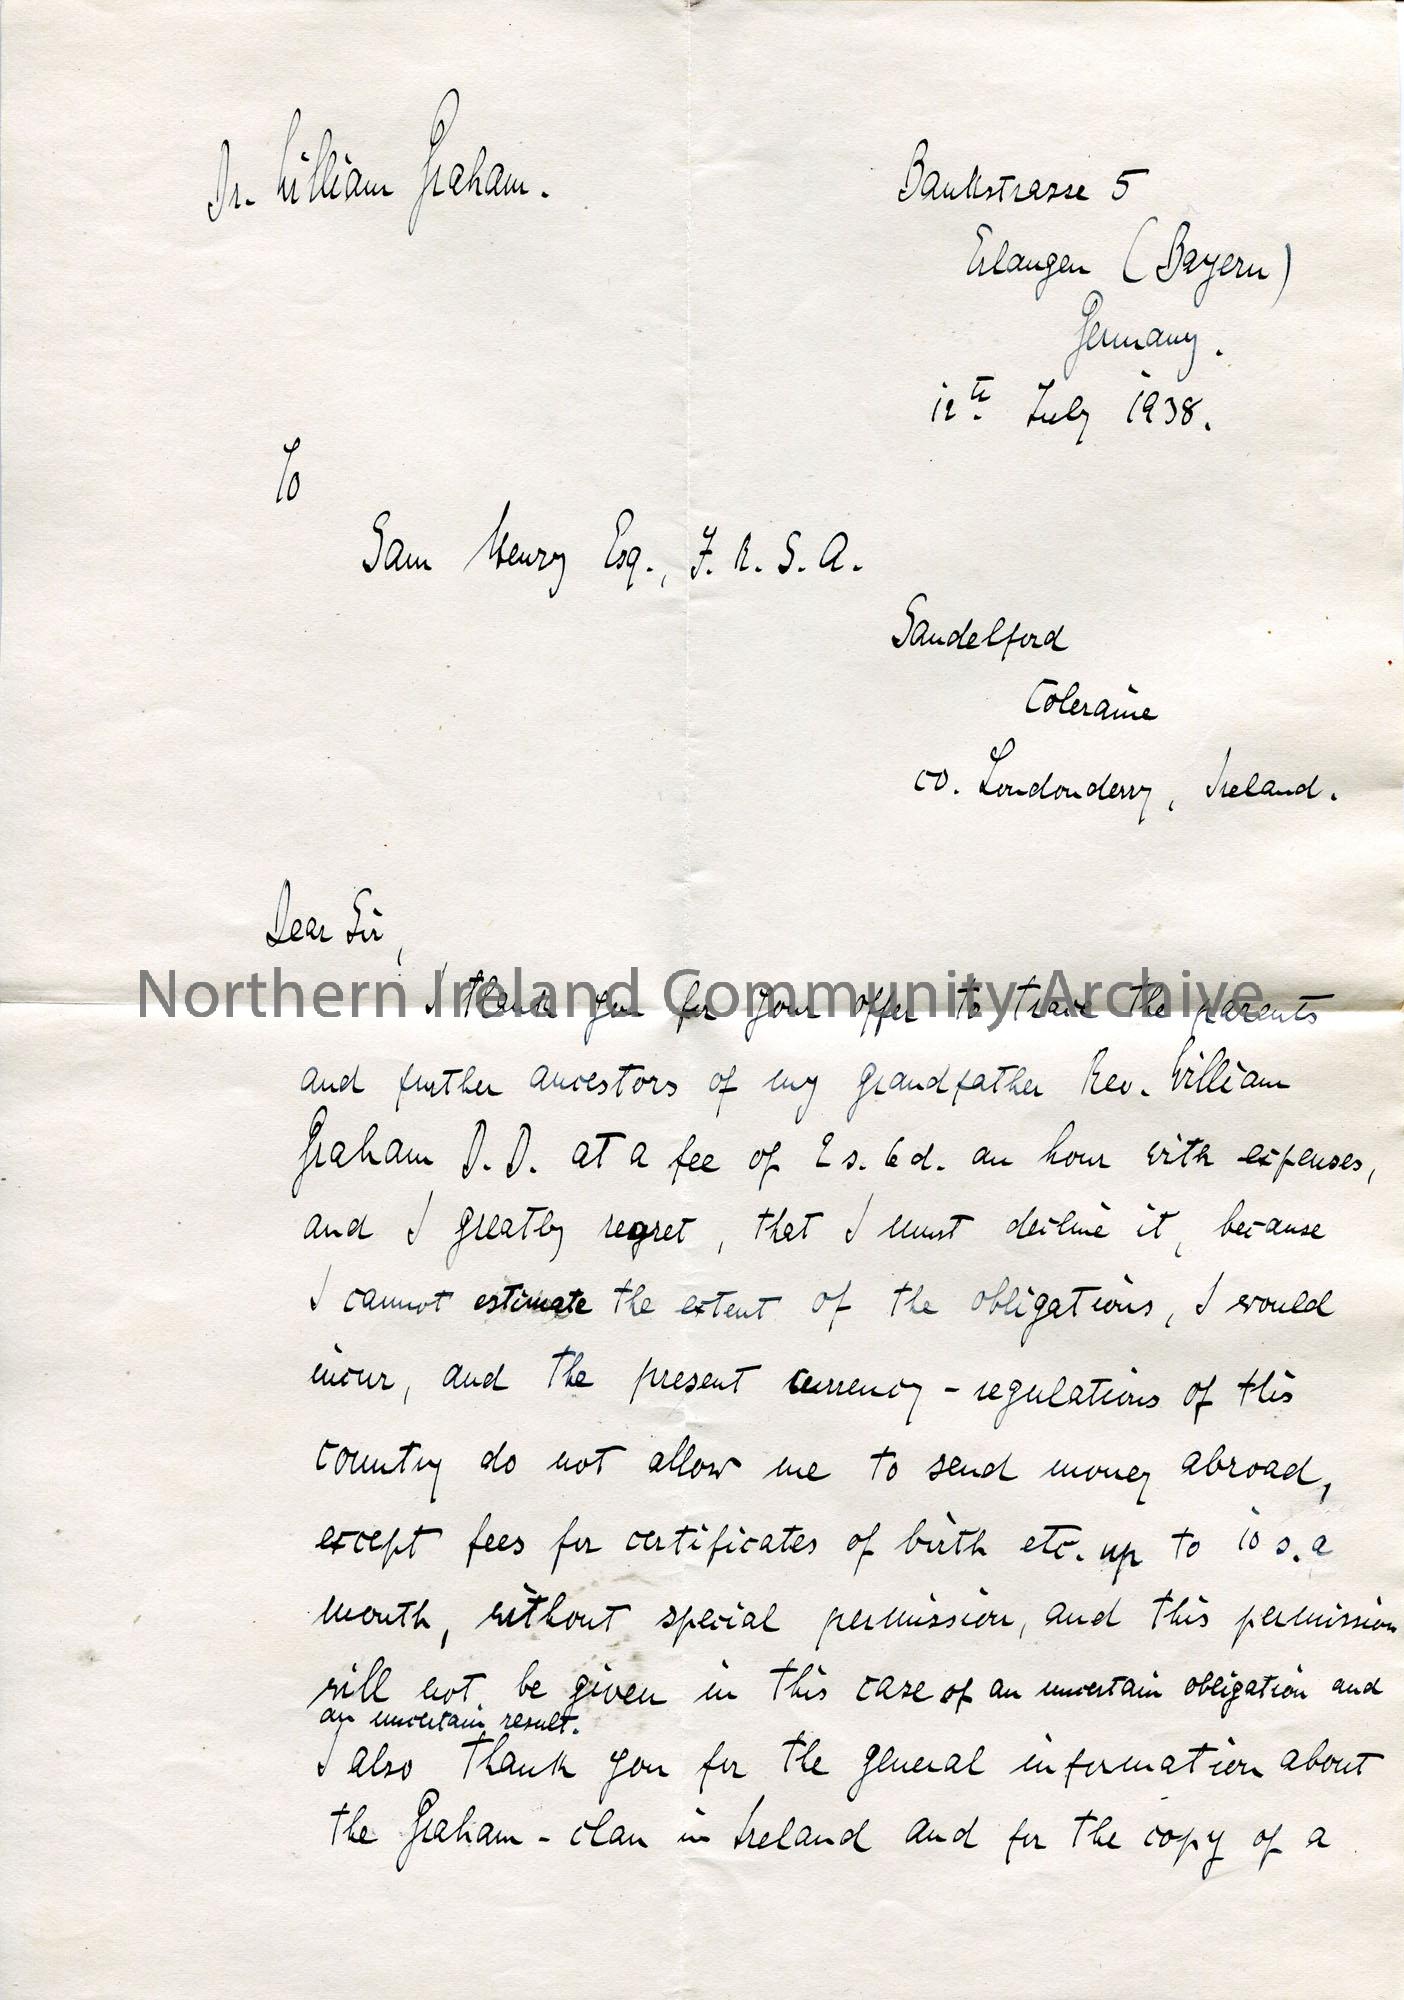 Dr. William Graham.
Bankstrasse 5
Erlangen (Bayern)
Germany.
12th July 1938.
To
Sam Henry Esq., F. R. S. A.
Sandelford
Coleraine
co. Londonderry, Ireland.
Dear Sir,
I thank you for your offer to trace the parents
Northern Ireland Community Archive
and further ancestors of my grandfather Rev. William
Graham D. D. at a fee of 2 s. 6 d. an hour with expenses,
and I greatly regret, that I must decline it, because
I cannot estimate the extent of the obligations, I would
incur, and the present currency-regulations of this
country do not allow me to send money abroad,
except fees for certificates of birth etc. up to 10 s. a
month, without special permission, and this permission
will not be given in this case of an uncertain obligation and
an uncertain result.
I also thank you for the general information about
the Graham-clan in Ireland and for the copy of a